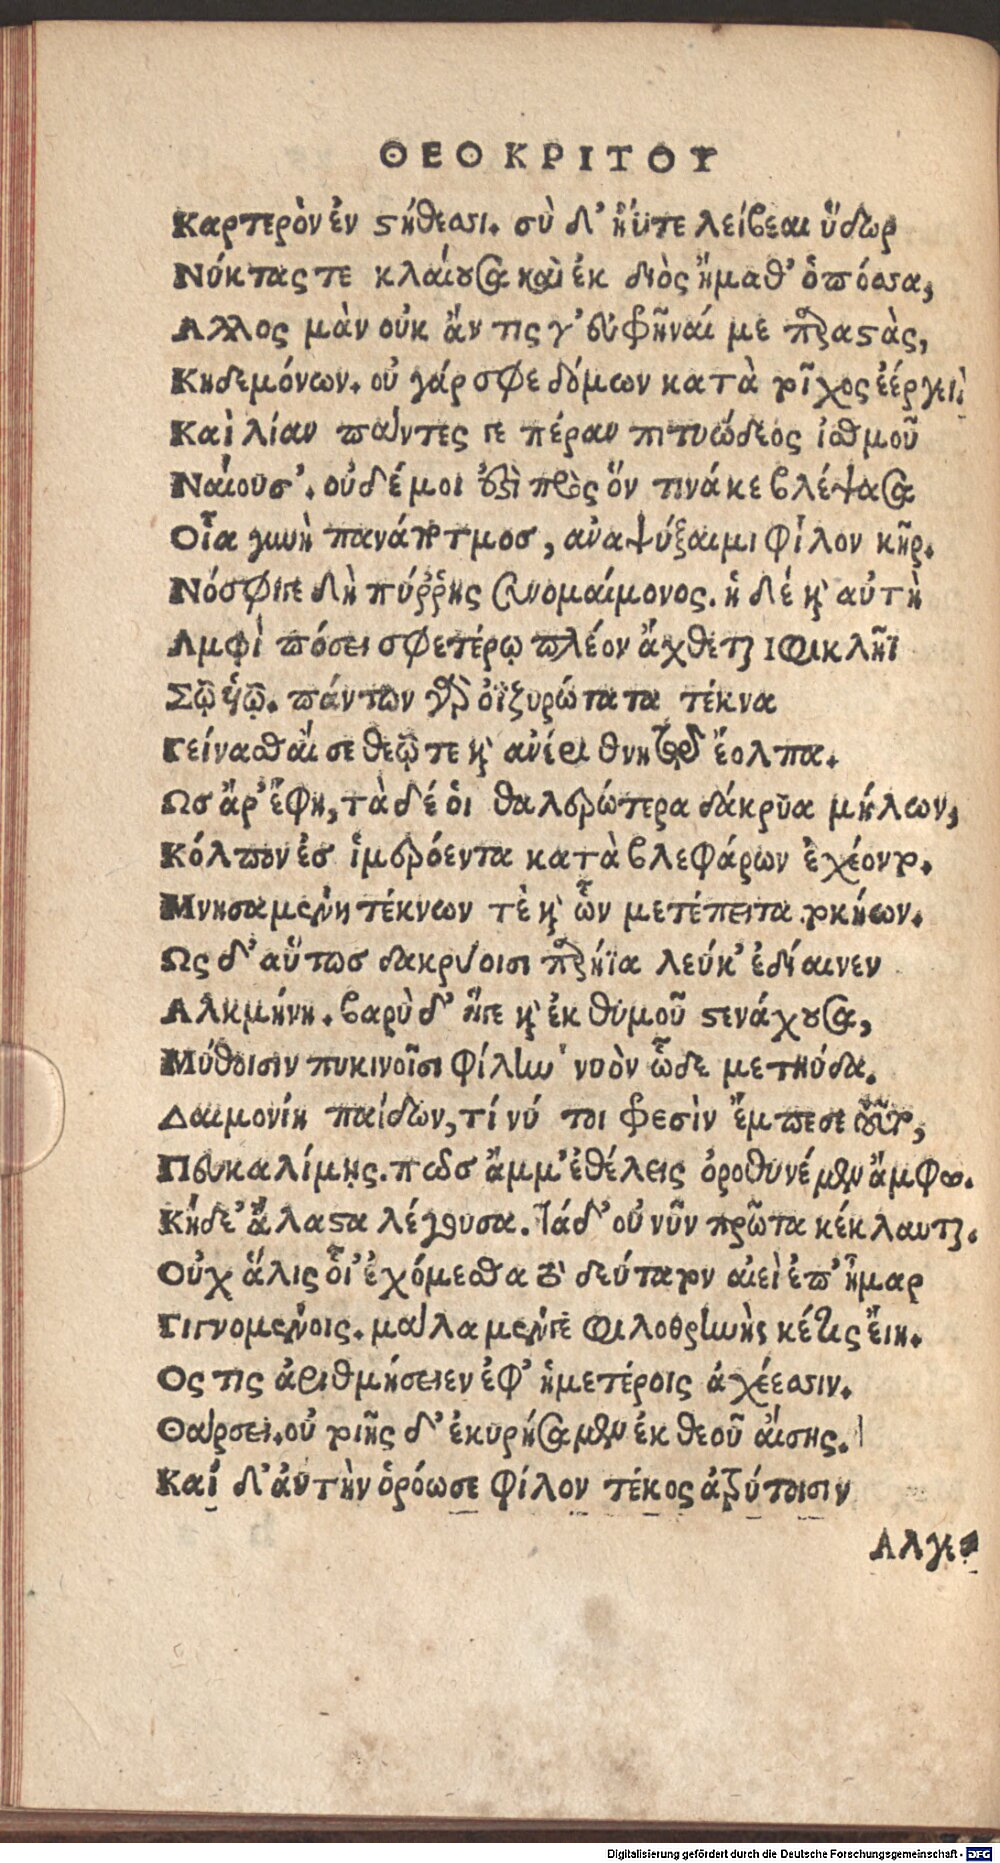 ΘΕΟΚΡΙΤΟΥ
Καρτερὸν ἐν στήθεσσι. σὺ δ' ἠΰτε λείβεαι ὕδωρ
Νύκτας τε κλαίουσα καὶ ἐκ διὸς ἤμαθ' ὁπόσσα,
Αλλος μὰν οὐκ ἄν τις γ' εὐφῆναί με παραστὰς,
Κηδεμόνων. οὐ γάρ σφε δόμων κατὰ τεῖχος ἐέργει.
Καὶ λίαν πάντες γε πέραν πιτυώδεος ἰσθμοῦ
Ναίουσ'. οὐδέ μοι ἐστὶ πρὸς ὅν τινά κε βλέψασα
Οἷα γυνὴ πανάποτμοσ, ἀναψύξαιμι φίλον κῆρ.
Νόσφιγε δὴ πύῤῥης συνομαίμονος. ἡ δέ καὶ αὐτὴ
Αμφὶ πόσει σφετέρῳ πλέον ἄχθεται ἰφικλῆϊ
Σῷ ὑῷ. πάντων γὰρ ὀϊζυρώτατα τέκνα
Γείνασθαί σε θεῷ τε καὶ ἀνέρι θνητῷ ἔολπα.
Ωσ ἄρ' ἔφη, τὰ δέ ὁι θαλερώτερα δάκρυα μήλων,
Κόλπον ἐσ ἱμερόεντα κατὰ βλεφάρων ἐχέοντο.
Μνησαμένη τέκνων τὲ καὶ ὧν μετέπειτα τοκήων.
Ως δ' αὔτωσ δακρύοισι παρήϊα λεύκ' ἐδίαινεν
Αλκμήνη. βαρὺ δ' ἥγε καὶ ἐκ θυμοῦ στενάχουσα,
Μύθοισιν πυκινοῖσι φίλην νυὸν ὧδε μετηύδα.
Δαιμονίη παίδων, τί νύ τοι φρεσὶν ἔμπεσε τοῦτο,
Πευκαλίμης. πῶσ ἄμμ' ἐθέλεις ὀροθυνέμεν ἄμφω.
Κήδε' ἄλαστα λέγουσα. τάδ' οὐ νῦν πρῶτα κέκλαυται.
Οὐχ ἅλις οἷ' ἐχόμεσθα τὸ δεύτατον αἰεὶ ἐπ' ἦμαρ
Γιγνομένοις. μάλα μένγε φιλοθρηνὴς κέτις εἴη.
Ος τις ἀριθμήσειεν ἐφ' ἡμετέροις ἀχέεσσιν.
Θάρσει. οὐ τοιῆς δ' ἐκυρήσαμεν ἐκ θεοῦ αἴσης.
Καί δ' ἀυτὴν ὁρόωσε φίλον τέκος ἀτρύτοισιν
Αλγε-
Digitalisierung gefördert durch die Deutsche Forschungsgemeinschaft - DFG